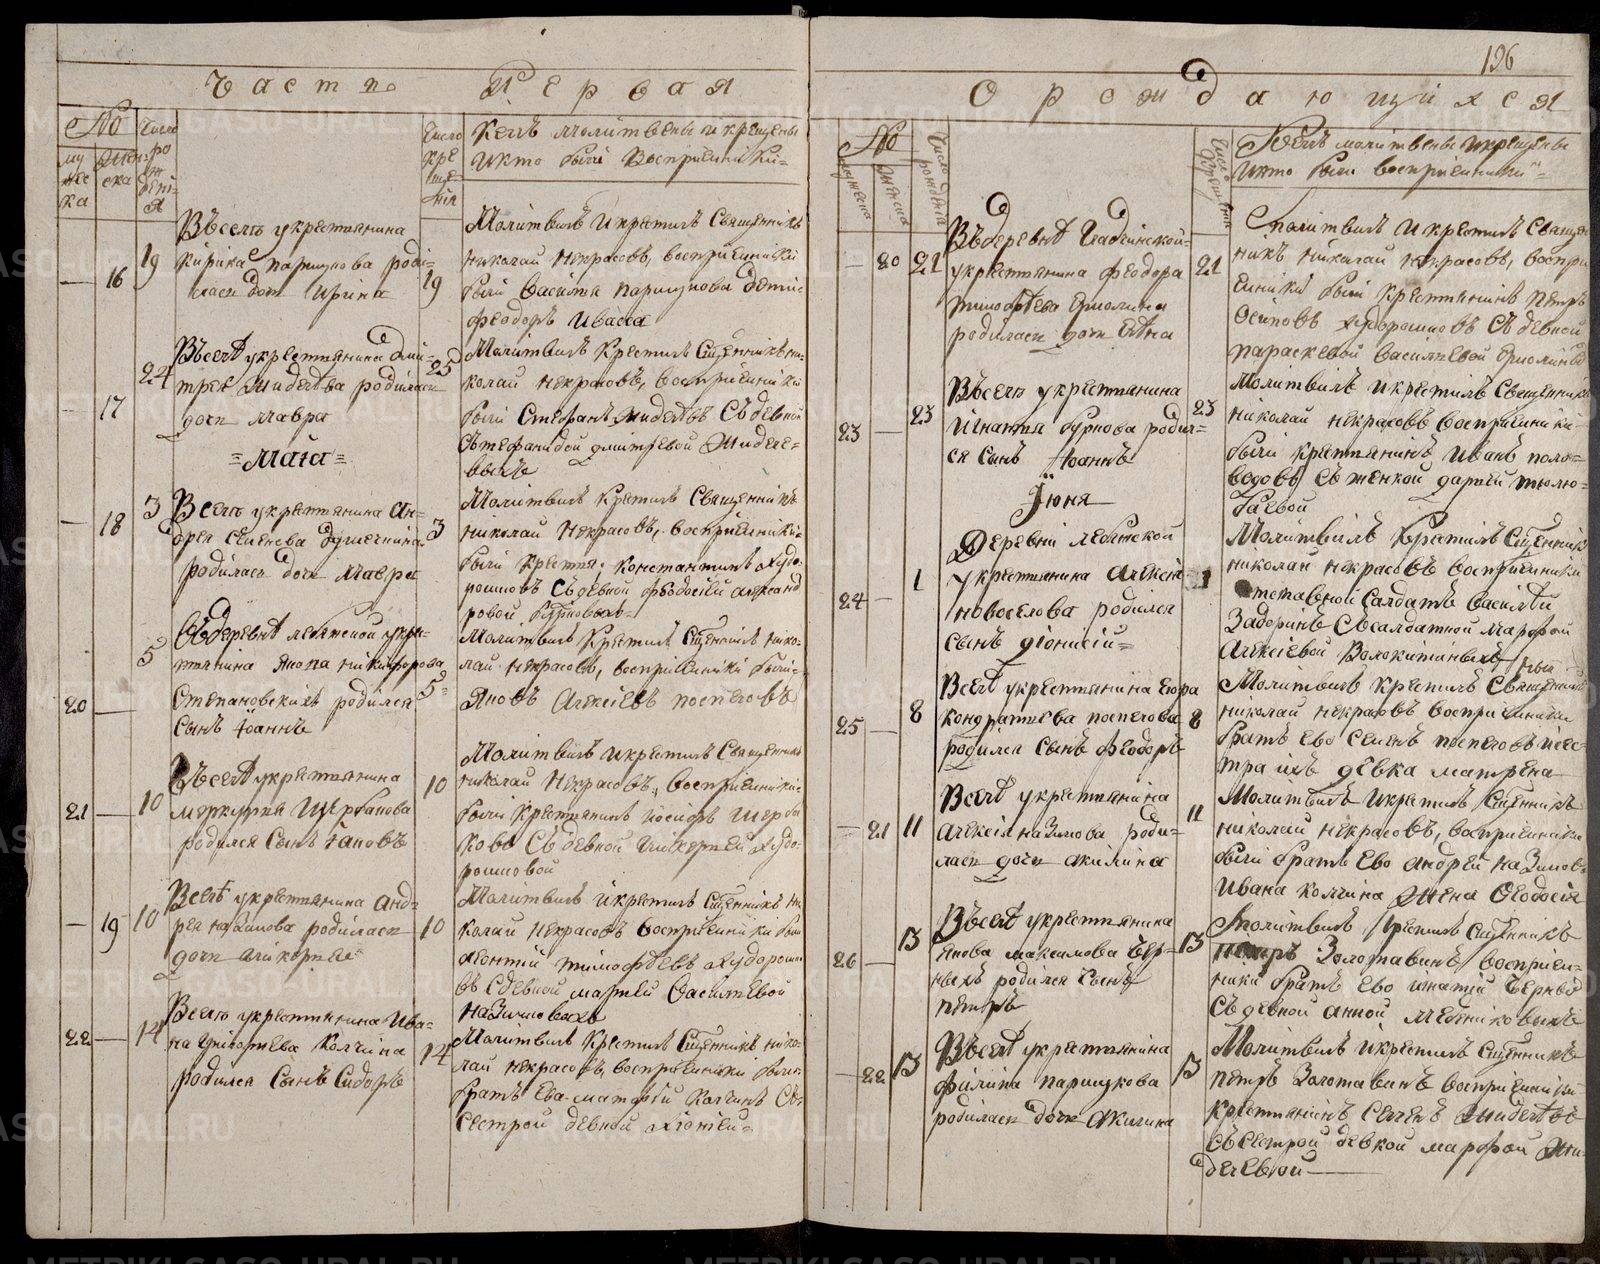 часть Первая
№
Число ро
жде
ні
я
му
же
ска
жен
ска
Число
кре
ще
нія
Кемъ молитвены и крещены
и кто были Восприемники
Въселѣ укрестьянина
16 19 Кирика паршукова роди=
лась дочь Ирина
19 Молитвилъ и крестилъ Священникъ
николай Некрасовъ, восприемники
были василья паршукова дети
Феодоръ и васса
17 24 Въселѣ укрестьянина дми=
трея жиделева родилась
дочь мавра
25 Молитвилъ Крестилъ Сщенникъ ни=
колай некрасовъ, восприемники
были Стефанъ жиделевъ Съ девкой
Стефанидой дмитревой жиделе=
выхъ
=Маія=
18 3 Вселѣ укрестьянина Ан=
дрея Семенова
родилась дочь мавра
3 Молитвилъ Крестилъ Священникъ
николай Некрасовъ, восприемники
были Крестья: константинъ худо
рошковъ Съ девкой Феодосьей александ
ровой
20 5 Въдеревнѣ лебятской укре=
стьянина Якова никифорова
Степановскихъ родился
сынъ Іоаннъ
5 Молитвилъ Крестилъ Сщенникъ нико=
лай некрасовъ, восприемники были
Яковъ Алексеевъ поспеловъ
21 10 Въселѣ укрестьянина
меркурья Щербакова
родился Сынъ Іаковъ
10 Молитвилъ и крестилъ Священникъ
николай Некрасовъ, восприемники
были Крестьянинъ иосифъ щерба
ковъ Съ девкой Гликерьей худо
рошковой
19 10 Вселѣ укрестьянина анд=
рея назимова родилась
дочь Гликерья
10 Молитвилъ и крестилъ Сщенникъ ни
колай Некрасовъ восприемники были
леонтий тимофеевъ худорошко
въ Сдевкой марьей васильевой
назимовыхъ
22 14 Вселѣ укрестьянина Ива=
на григорьева Колчина
родился Сынъ Сидоръ
14 Молитвилъ Крестилъ Сщенникъ нико=
лай некрасовъ восприемники были
братъ Ево матвей Колчинъ Съ
Сестрой девкой Хіоніей=
196
О рождающихся
№
мужеска
женска
Число рожденія
Число крещенія
Кемъ молитвены и крещены
и кто были восприемники
20 21 Въдеревнѣ
укрестьянина феодора
тимофеева Ермолина
родилась дочь Анна
21 Молитвилъ и крестилъ Священ
никъ николай некрасовъ, воспри
емники были Крестьянинъ петръ
Осиповъ худорошковъ Съ девкой
параскевой васильевой Ермолиной
23 23 Въселѣ укрестьянина
Игнатья бурнова родил=
ся Сынъ Іоаннъ
23 Молитвилъ и крестилъ Священникъ
николай некрасовъ восприемники
были крестьянинъ Иванъ поло=
водовъ Съ женкой дарьей тюлю
баевой
Іюня
24 1 Деревни лебятской
укрестьянина алексея
новоселова родился
сынъ діонисій=
1 Молитвилъ Крестилъ Сщенник
николай некрасовъ восприемники
отставной Салдатъ Василей
Задоринъ Съ салдаткой марфой
алексеевой Волокитиныхъ
25 8 Вселѣ укрестьянина Егора
кондратьева поспелова
родился Сынъ Феодоръ
8 Молитвилъ крестилъ Священникъ
николай некрасовъ восприемники
братъ Ево Семенъ поспеловъ и сес=
тра ихъ девка матрена
21 11 Вселѣ укрестьянина
алексея назимова роди=
лась дочь акилина
11 Молитвилъ и крестилъ Сщенникъ
николай некрасовъ, восприемники
были братъ Ево андрей назимовъ
Ивана колчина жена Феодосія
26 13 Въселѣ укрестьянина
Якова максимова Чер=
ныхъ родился Сынъ
петръ
13 Молитвилъ Крестилъ Сщенникъ
петръ Золотавинъ восприем=
ники братъ Ево игнатій Черныхъ
Съ девкой анной
22 13 Въселѣ укрестьянина
Филипа паршукова
родилась дочь акилина
13 Молитвилъ и крестилъ Сщенникъ
петръ Золотавинъ восприемники
Крестьянинъ Семенъ жиделевъ
Съ Сестрой девкой марфой жи
делевой